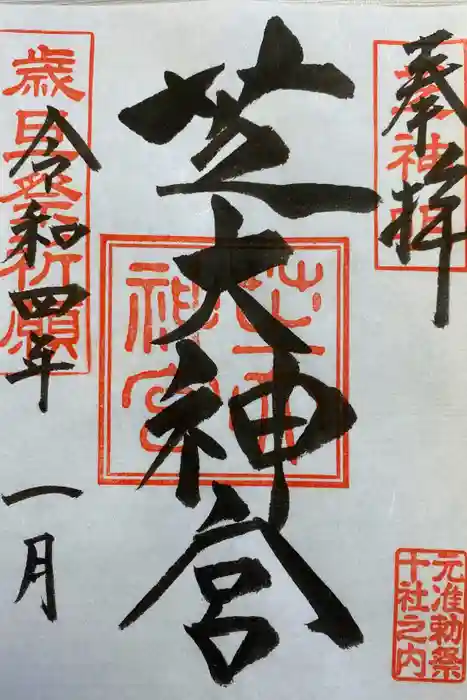 奉拝
芝大神宮
令和四年
一月
歳旦祭祈願
芝大神宮
元准勅祭
十社之内